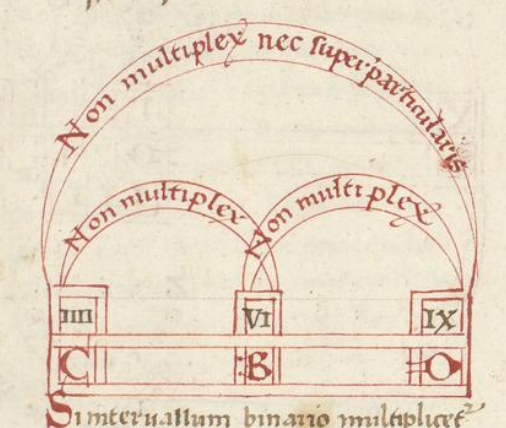 Non multiplex nec superparticularis
Non multiplex Non multiplex
IIII VI IX
C B D
Si intervallum binario multiplicet